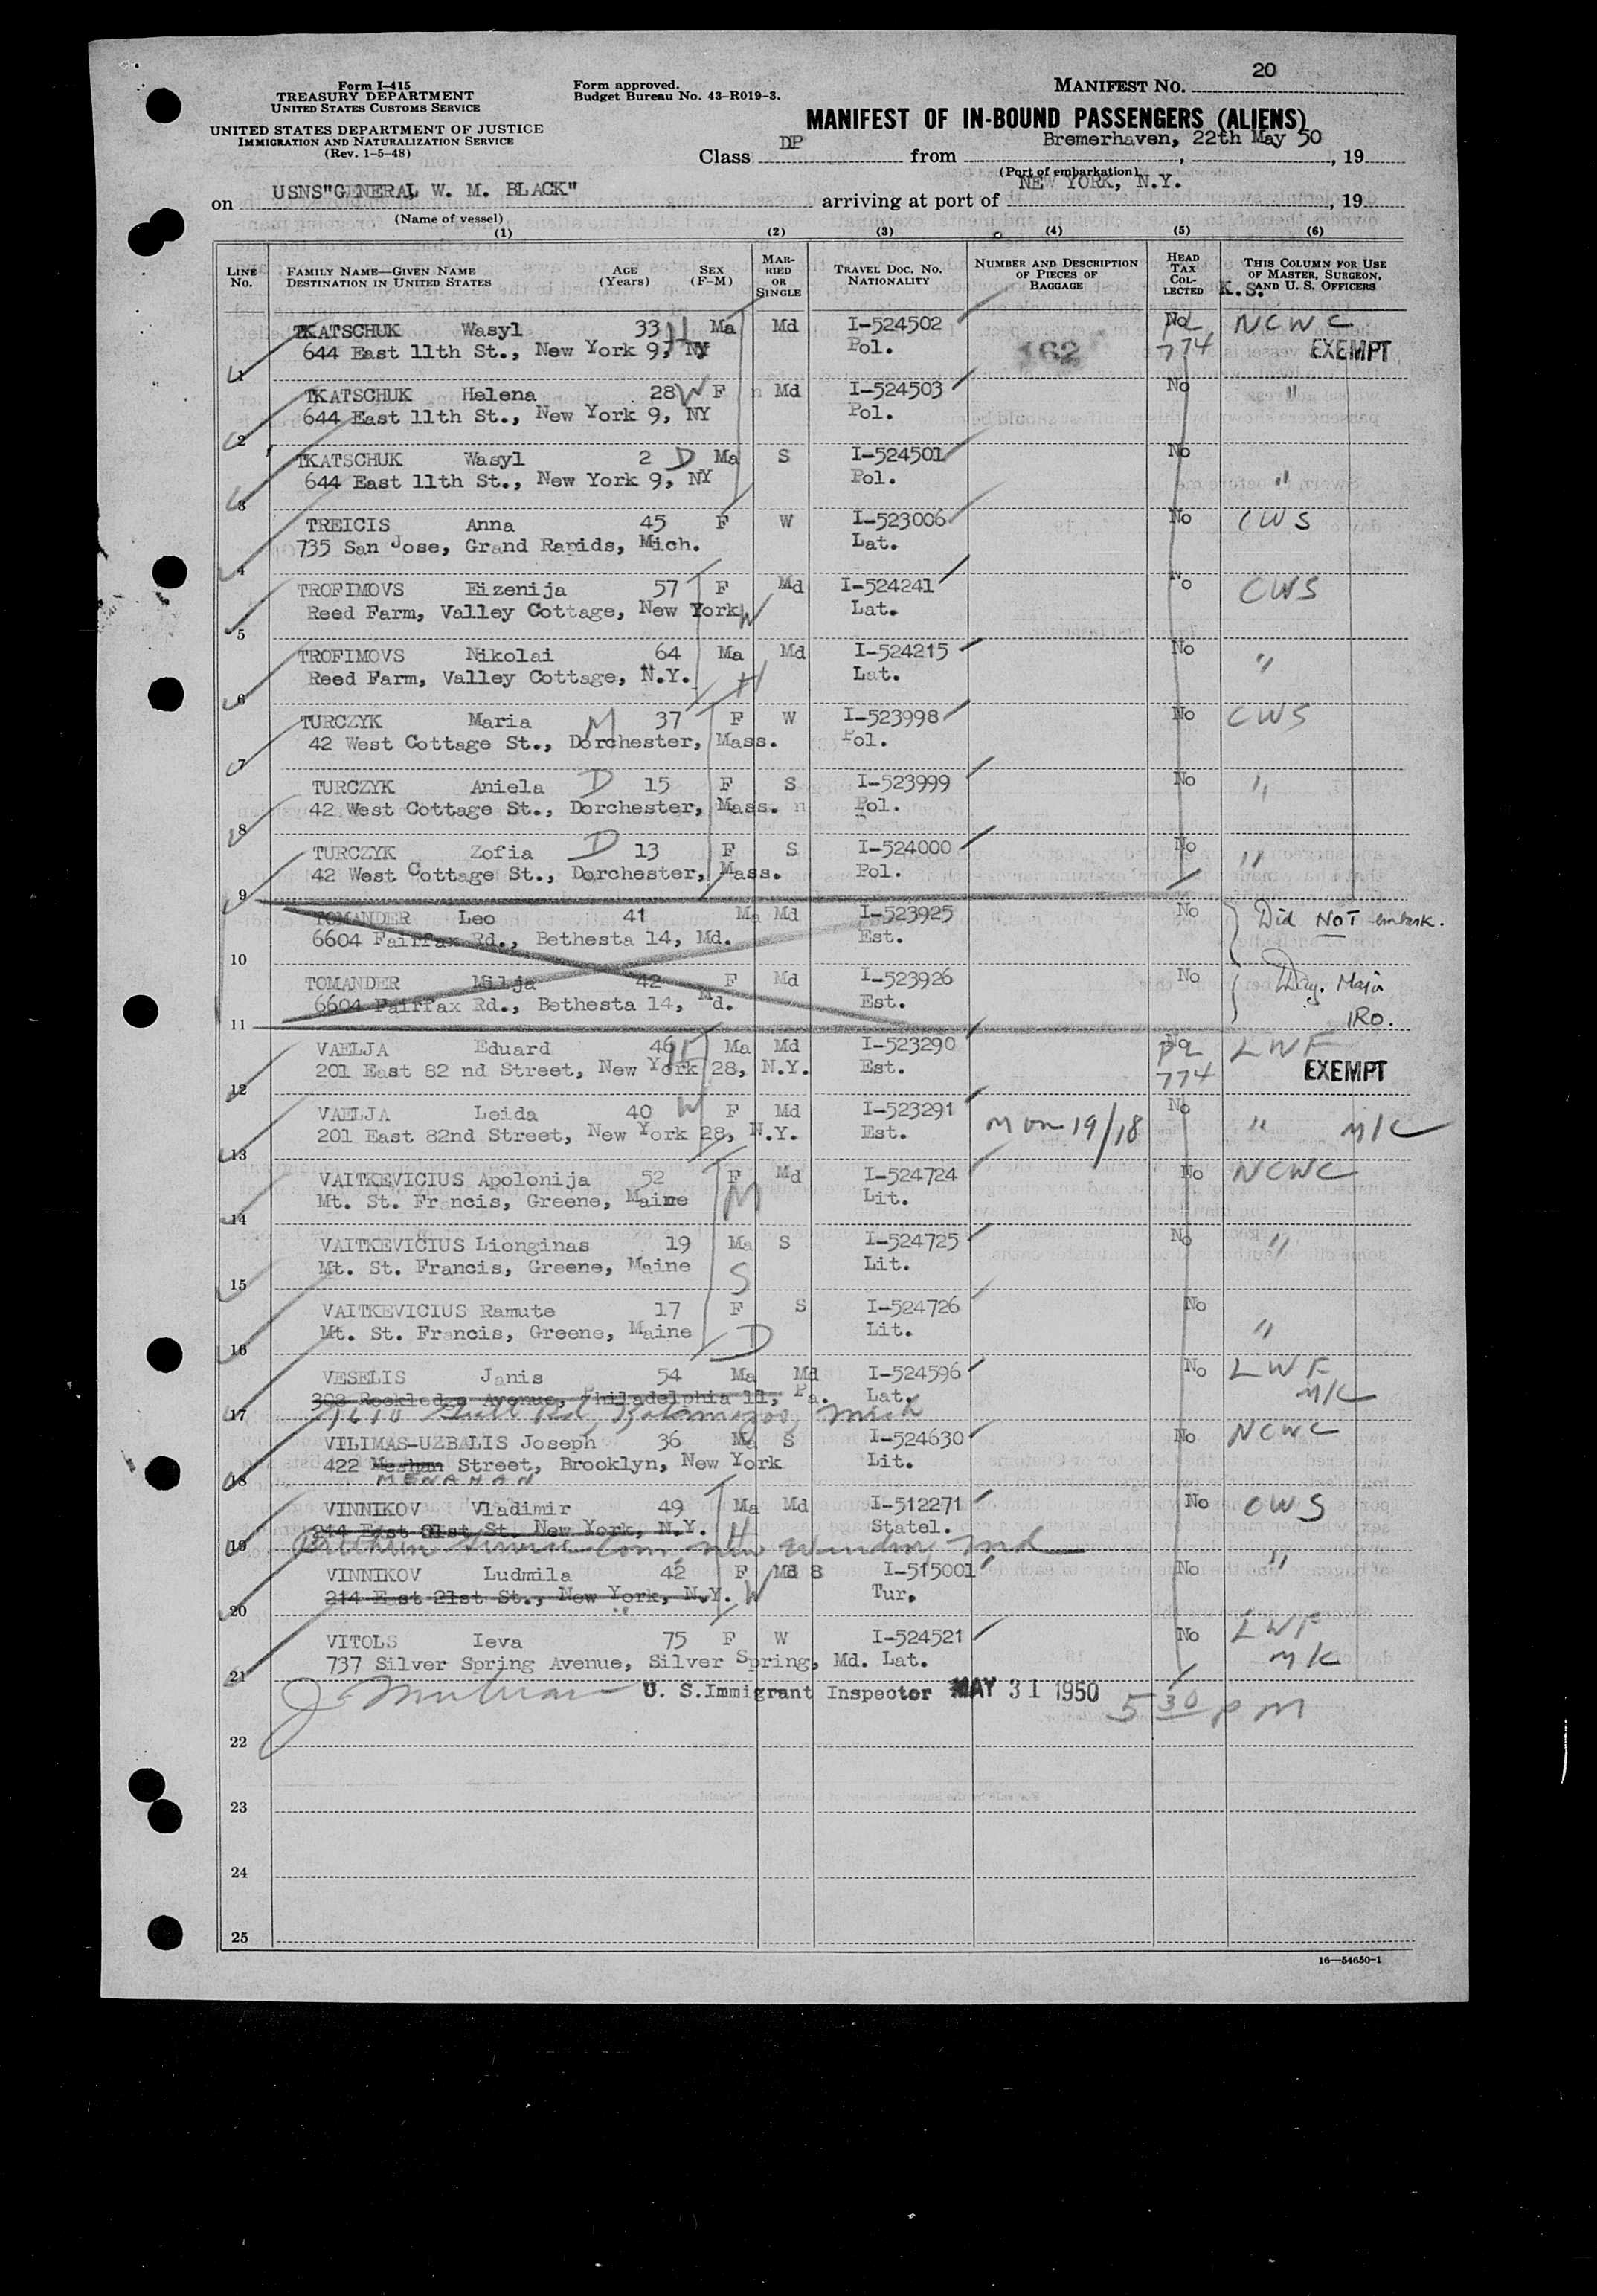 Form I-415
TREASURY DEPARTMENT
UNITED STATES CUSTOMS SERVICE
UNITED STATES DEPARTMENT OF JUSTICE
IMMIGRATION AND NATURALIZATION SERVICE
(Rev. 1-5-48)
Form approved.
Budget Bureau No. 43-R019-3.
MANIFEST No. 20
MANIFEST OF IN-BOUND PASSENGERS (ALIENS)
Class DP from Bremerhaven, 22th May 50, 19
(Port of embarkation)
on USNS"GENERAL W. M. BLACK" arriving at port of NEW YORK, N.Y., 19
(Name of vessel)
(1) (2) (3) (4) (5) (6)
LINE No. FAMILY NAME—GIVEN NAME DESTINATION IN UNITED STATES AGE (Years) SEX (F-M) MARRIED OR SINGLE TRAVEL DOC. No. NATIONALITY NUMBER AND DESCRIPTION OF PIECES OF BAGGAGE HEAD TAX COLLECTED THIS COLUMN FOR USE OF MASTER, SURGEON, AND U. S. OFFICERS
K.S.
TKATSCHUK Wasyl 33 H Ma Md I-524502 No NCWC
1 644 East 11th St., New York 9, NY Pol. 162 774 EXEMPT
TKATSCHUK Helena 28 W F Md I-524503 No "
2 644 East 11th St., New York 9, NY Pol.
TKATSCHUK Wasyl 2 D Ma S I-524501 No
3 644 East 11th St., New York 9, NY Pol. "
TREICIS Anna 45 F W I-523006 No CWS
4 735 San Jose, Grand Rapids, Mich. Lat.
TROFIMOVS Eizenija 57 F Md I-524241 No CWS
5 Reed Farm, Valley Cottage, New York W Lat.
TROFIMOVS Nikolai 64 Ma Md I-524215 No "
6 Reed Farm, Valley Cottage, N.Y. H Lat.
TURCZYK Maria M 37 F W I-523998 No CWS
7 42 West Cottage St., Dorchester, Mass. Pol.
TURCZYK Aniela D 15 F S I-523999 No "
8 42 West Cottage St., Dorchester, Mass. Pol.
TURCZYK Zofia D 13 F S I-524000 No "
9 42 West Cottage St., Dorchester, Mass. Pol.
TOMANDER Leo 41 Ma Md I-523925 No Did NOT embark.
10 6604 Fairfax Rd., Bethesta 14, Md. Est.
TOMANDER Milja 42 F Md I-523926 No Day. Major
11 6604 Fairfax Rd., Bethesta 14, Md. Est. IRO.
VAELJA Eduard 46 H Ma Md I-523290 No LWF
12 201 East 82 nd Street, New York 28, N.Y. Est. 774 EXEMPT
VAELJA Leida 40 W F Md I-523291 No " M/C
13 201 East 82nd Street, New York 28, N.Y. Est. 19/18
VAITKEVICIUS Apolonija 52 F Md I-524724 No NCWC
14 Mt. St. Francis, Greene, Maine M Lit.
VAITKEVICIUS Lionginas 19 Ma S I-524725 No "
15 Mt. St. Francis, Greene, Maine S Lit.
VAITKEVICIUS Ramute 17 F S I-524726 No
16 Mt. St. Francis, Greene, Maine D Lit. "
VESELIS Janis 54 Ma Md I-524596 No LWF
303 Rockledge Avenue, Philadelphia 11, Pa. Lat. M/C
17 1610 Gull Rd, Kalamazoo, Mich
VILIMAS-UZBALIS Joseph 36 Ma S I-524630 No NCWC
422 Meshan Street, Brooklyn, New York Lit.
18 MENAHAN
VINNIKOV Vladimir 49 Ma Md I-512271 No CWS
214 East 21st St. New York, N.Y. H Statel.
19 Brethren Service Com, New Windsor, Md
VINNIKOV Ludmila 42 F Md S I-515001 No "
20 214 East 21st St., New York, N.Y. W Tur.
VITOLS Ieva 75 F W I-524521 No LWF
21 737 Silver Spring Avenue, Silver Spring, Md. Lat. M/C
U. S. Immigrant Inspector MAY 31 1950 5 30 PM
22
23
24
25
16—54650-1